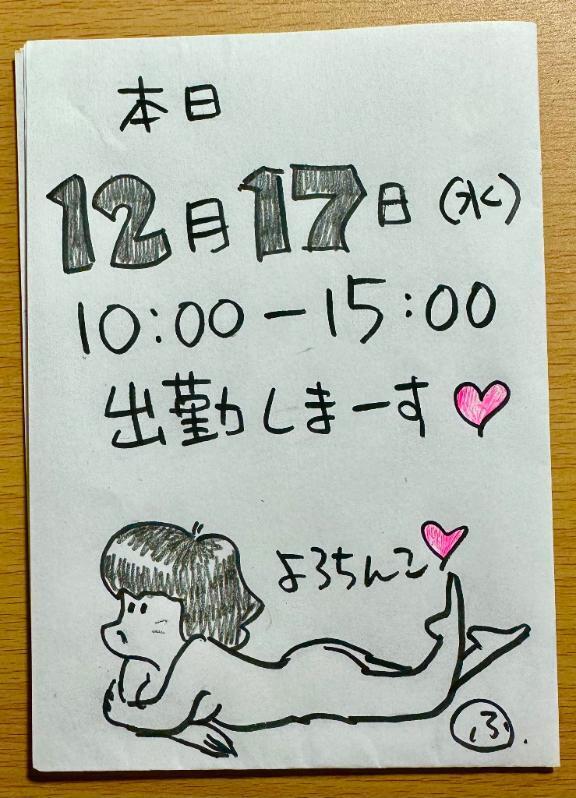 本日
12月17日(水)
10:00-15:00
出勤しまーす
よろちんこ
ふ